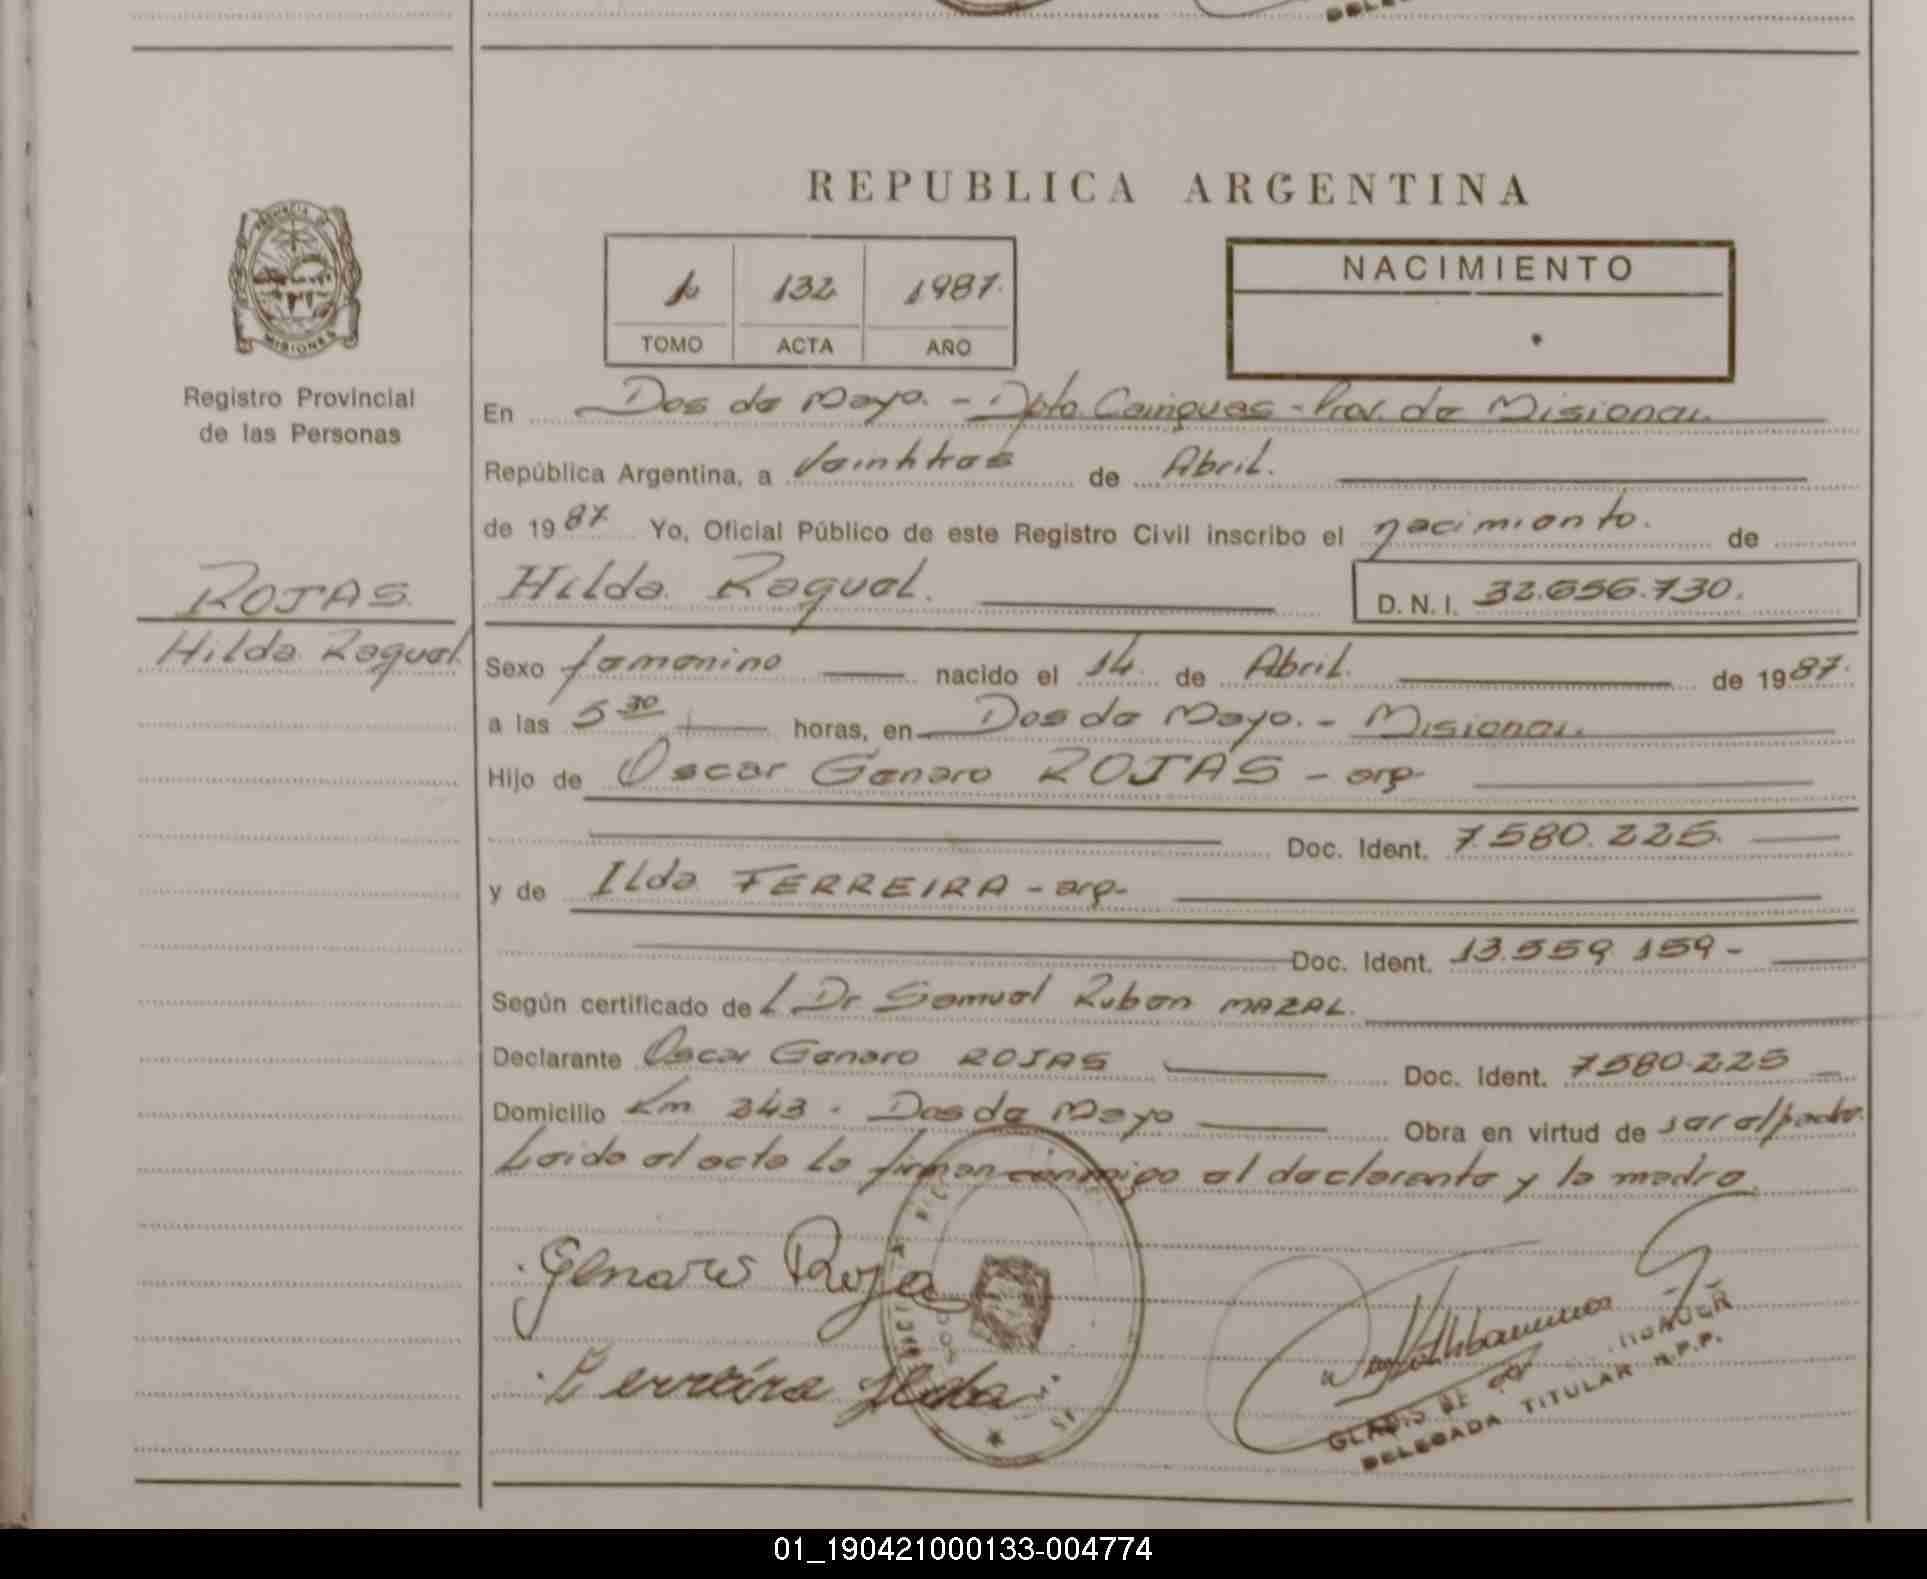 REPUBLICA ARGENTINA
PROVINCIA DE
MISIONES
Registro Provincial
de las Personas
1 132 1987.
TOMO ACTA AÑO
NACIMIENTO
En Dos de Mayo. - Dpto. Cainguas - Prov. de Misiones.
República Argentina, a veintitres de Abril.
de 1987 Yo, Oficial Público de este Registro Civil inscribo el nacimiento. de
ROJAS.
Hilda Raquel.
Hilda Raquel. D.N.I. 32.656.730.
Sexo femenino nacido el 14 de Abril. de 1987.
a las 5 30 horas, en Dos de Mayo. - Misiones.
Hijo de Oscar Genaro ROJAS - arg.
Doc. Ident. 7.580.225.
y de Ilda FERREIRA - arg.
Doc. Ident. 13.559.159 -
Según certificado de L Dr Samuel Ruben MAZAL.
Declarante Oscar Genaro ROJAS Doc. Ident. 7.580.225
Domicilio Km 243 - Dos de Mayo Obra en virtud de ser el padre.
Leida el acta la firman conmigo el declarante y la madre.
Genaro Roja
Ferreira Ilda
GLADIS DE
DELEGADA TITULAR R.P.P.
01_190421000133-004774